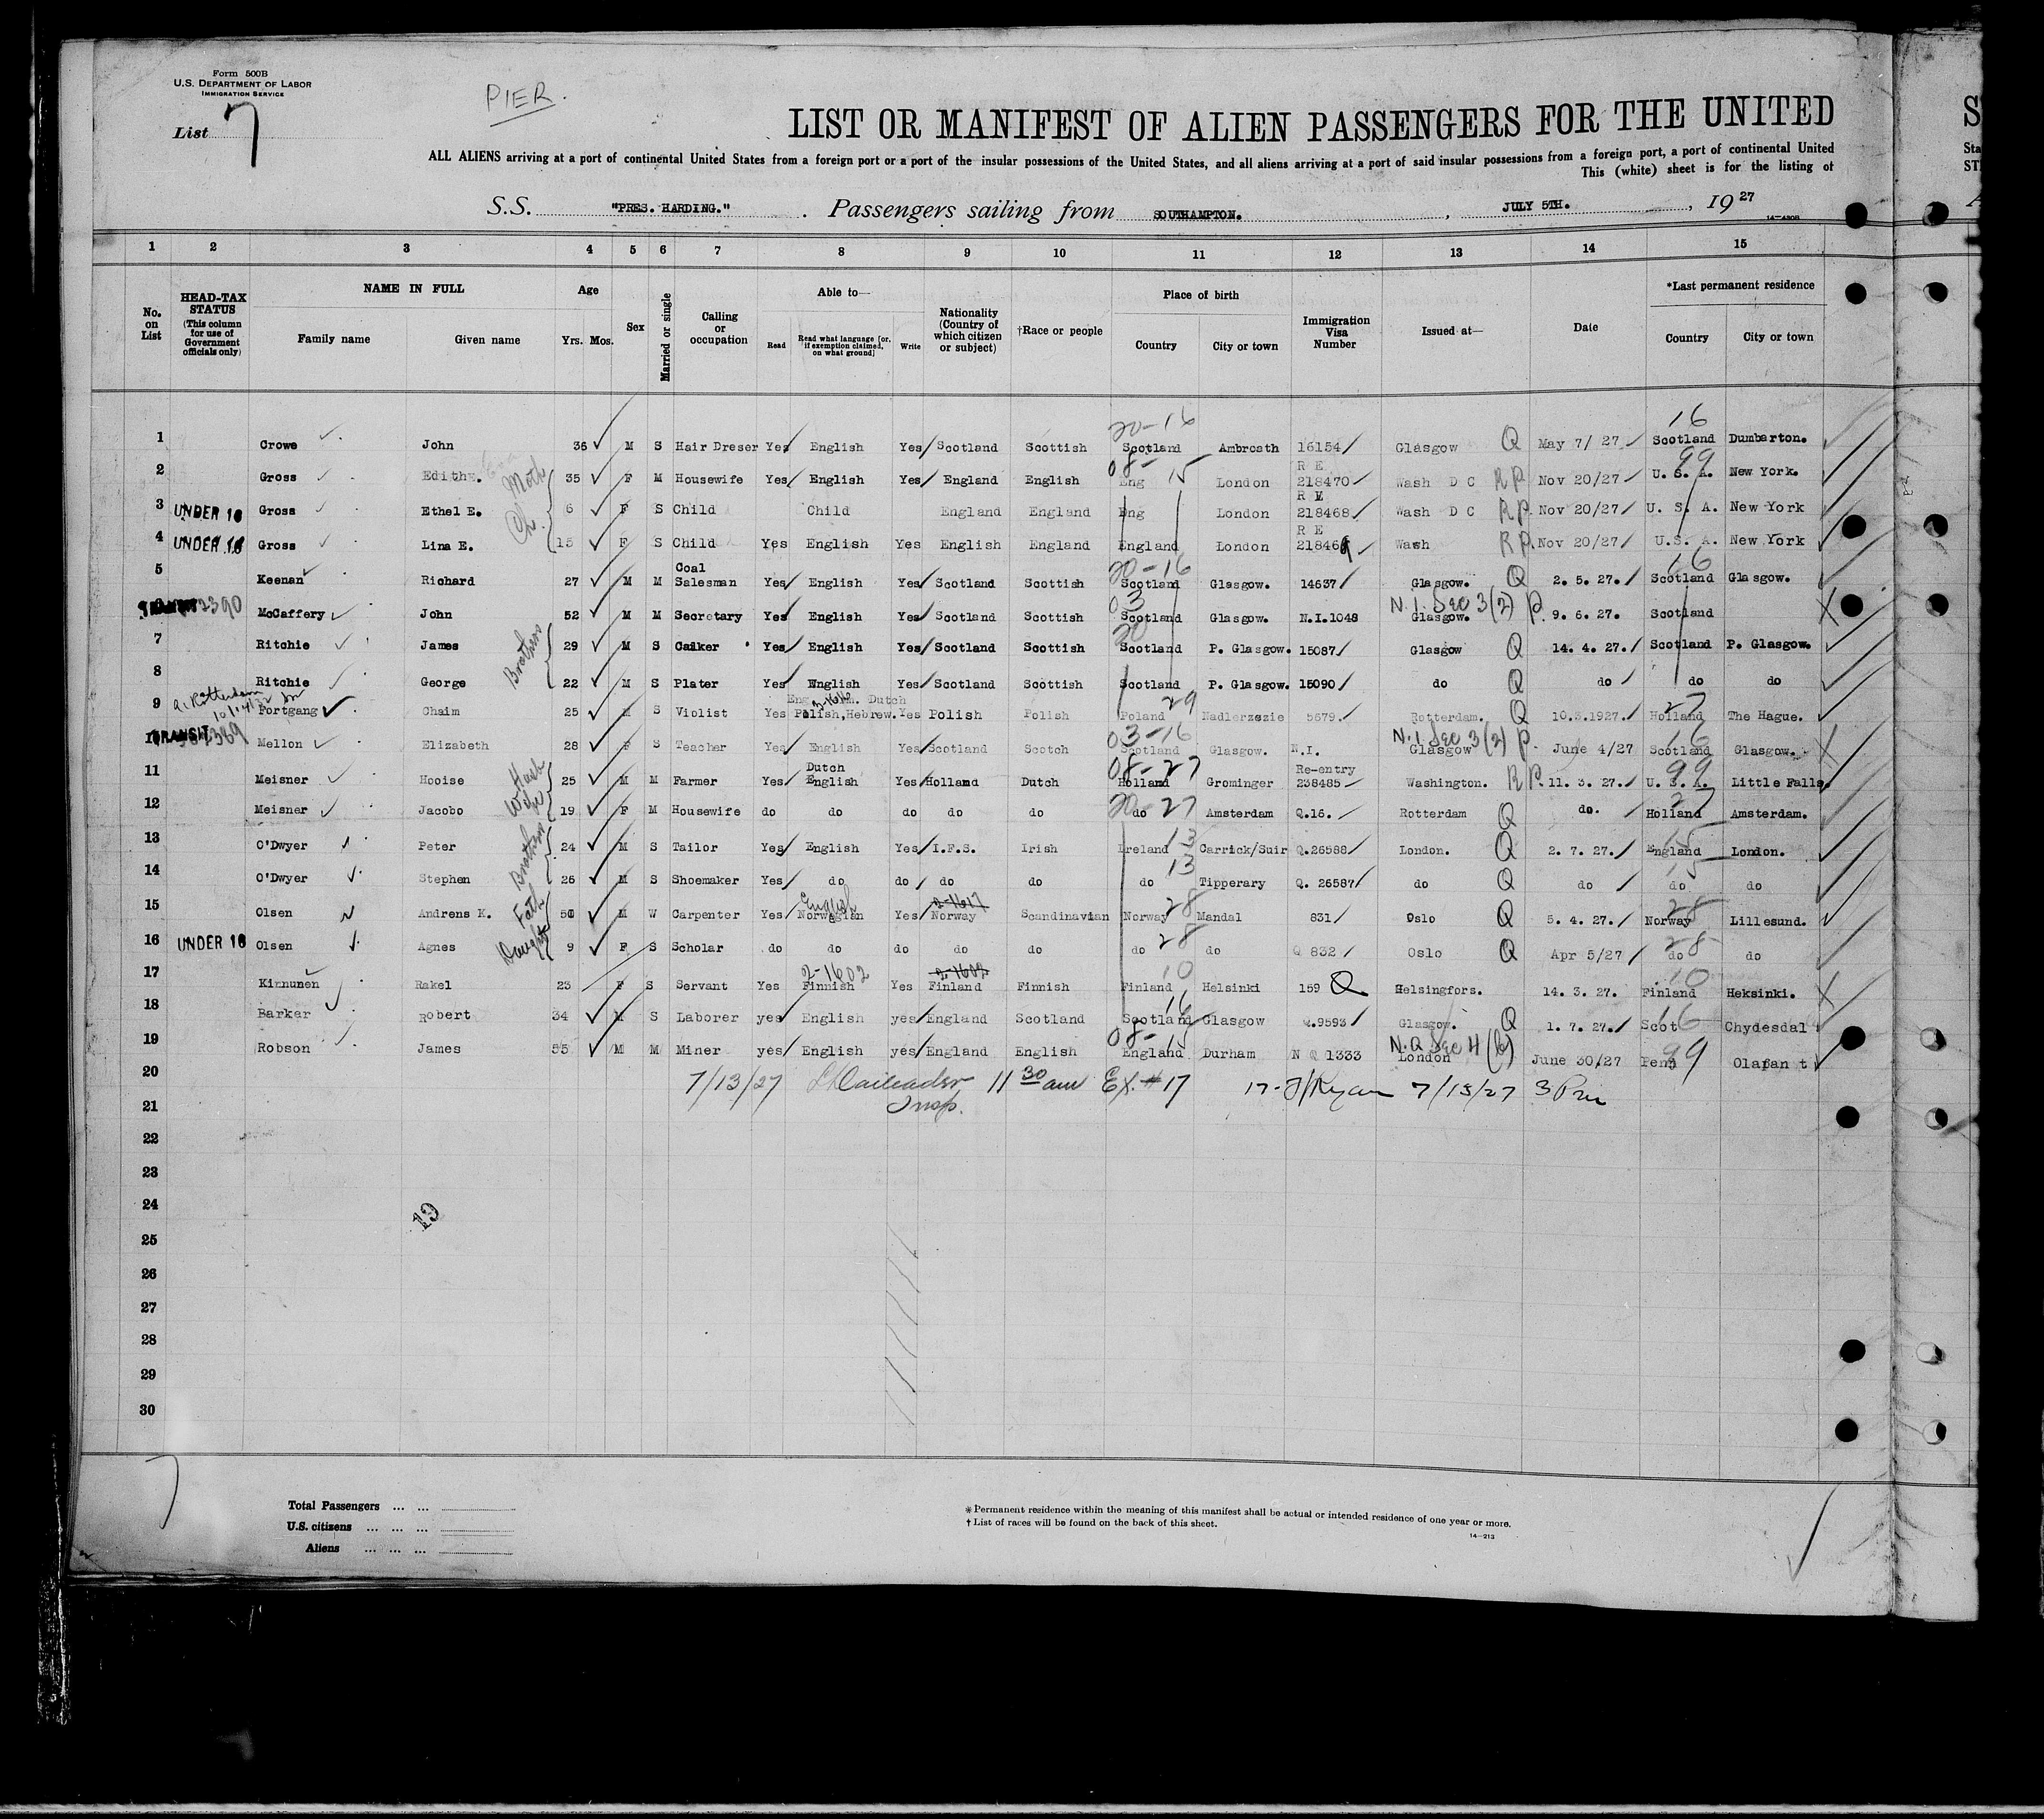 Form 500B
U.S. DEPARTMENT OF LABOR
IMMIGRATION SERVICE
PIER.
List 7
LIST OR MANIFEST OF ALIEN PASSENGERS FOR THE UNITED
ALL ALIENS arriving at a port of continental United States from a foreign port or a port of the insular possessions of the United States, and all aliens arriving at a port of said insular possessions from a foreign port, a port of continental United
This (white) sheet is for the listing of
S.S. "PRES. HARDING." Passengers sailing from SOUTHAMPTON. , JULY 5TH. , 19 27
1 2 3 4 5 6 7 8 9 10 11 12 13 14 15
No. on List HEAD-TAX STATUS (This column for use of Government officials only) NAME IN FULL Family name Given name Age Yrs. Mos. Sex Married or single Calling or occupation Able to— Read Read what language [or, if exemption claimed, on what ground] Write Nationality (Country of which citizen or subject) †Race or people Place of birth Country City or town Immigration Visa Number Issued at— Date *Last permanent residence Country City or town
20-16 16
1 Crowe John 36 M S Hair Dreser Yes English Yes Scotland Scottish Scotland Ambroath 16154 Glasgow Q May 7/ 27 Scotland Dumbarton.
08- 15 R E 99
2 Gross Edith E. Moth 35 F M Housewife Yes English Yes England English Eng London 218470 Wash D C RP Nov 20/27 U. S. A. New York.
R E
3 UNDER 16 Gross Ethel E. Ch. 6 F S Child Child England England Eng London 218468 Wash D C RP. Nov 20/27 U. S. A. New York
R E
4 UNDER 16 Gross Lina E. 15 F S Child Yes English Yes English England England London 218469 Wash RP. Nov 20/27 U.S. A. New York
20-16 16
5 Keenan Richard 27 M M Coal Salesman Yes English Yes Scotland Scottish Scotland Glasgow. 14637 Glasgow. Q 2. 5. 27. Scotland Glasgow.
03 N.I. Sec 3(2) P.
TRANSIT 2390 McCaffery John 52 M M Secretary Yes English Yes Scotland Scottish Scotland Glasgow. N.I.1048 Glasgow. 9. 6. 27. Scotland
20
7 Ritchie James Brothers 29 M S Calker Yes English Yes Scotland Scottish Scotland P. Glasgow. 15087 Glasgow Q 14. 4. 27. Scotland P. Glasgow.
8 Ritchie George 22 M S Plater Yes English Yes Scotland Scottish Scotland P. Glasgow. 15090 do Q do do do
Rotterdam Dutch 29 27
9 Fortgang Chaim 25 M S Violist Yes Polish, Hebrew. Yes Polish Polish Poland Nadlerzezie 5579. Rotterdam. Q 10.3.1927. Holland The Hague.
03-16 N.I. Sec 3(2) P. 16
10 TRANSIT Mellon Elizabeth 28 F S Teacher Yes English Yes Scotland Scotch Scotland Glasgow. N.I. Glasgow June 4/27 Scotland Glasgow.
Dutch 08-27 Re-entry 99
11 Meisner Hooise Husb 25 M M Farmer Yes English Yes Holland Dutch Holland Grominger 238485 Washington. RP. 11. 3. 27. U. S. A. Little Falls.
20-27 27
12 Meisner Jacobo Wife 19 F M Housewife do do do do do do Amsterdam Q.16. Rotterdam Q do. Holland Amsterdam.
13 15
13 O'Dwyer Peter Brothers 24 M S Tailor Yes English Yes I.F.S. Irish Ireland Carrick/Suir Q.26588 London. Q 2. 7. 27. England London.
13 15
14 O'Dwyer Stephen 26 M S Shoemaker Yes do do do do do Tipperary Q. 26587 do Q do do do
English 2-1617 28 28
15 Olsen Andrens K. Fath 50 M W Carpenter Yes Norwegian Yes Norway Scandinavian Norway Mandal 831 Oslo Q 5. 4. 27. Norway Lillesund.
28 28
16 UNDER 16 Olsen Agnes Daught 9 F S Scholar do do do do do do do Q 832 Oslo Q Apr 5/27 do do
2-1602 2-1602 10 10
17 Kinnunen Rakel 23 F S Servant Yes Finnish Yes Finland Finnish Finland Helsinki 159 Q Helsingfors. 14. 3. 27. Finland Heksinki.
16 16
18 Barker Robert 34 M S Laborer yes English yes England Scotland Scotland Glasgow Q.9593 Glasgow. Q 1. 7. 27. Scot Chydesdal
08-15 N.Q Sec 4(b) 99
19 Robson James 55 M M Miner yes English yes England English England Durham N Q 1333 London June 30/27 Penn Olafan t
20 7/13/27 11 30 am Ex. #17 17- Ryan 7/13/27 3 Pm
21 Insp.
22
23
24
19
25
26
27
28
29
30
7
Total Passengers
U.S. citizens
Aliens
* Permanent residence within the meaning of this manifest shall be actual or intended residence of one year or more.
† List of races will be found on the back of this sheet.
14—213